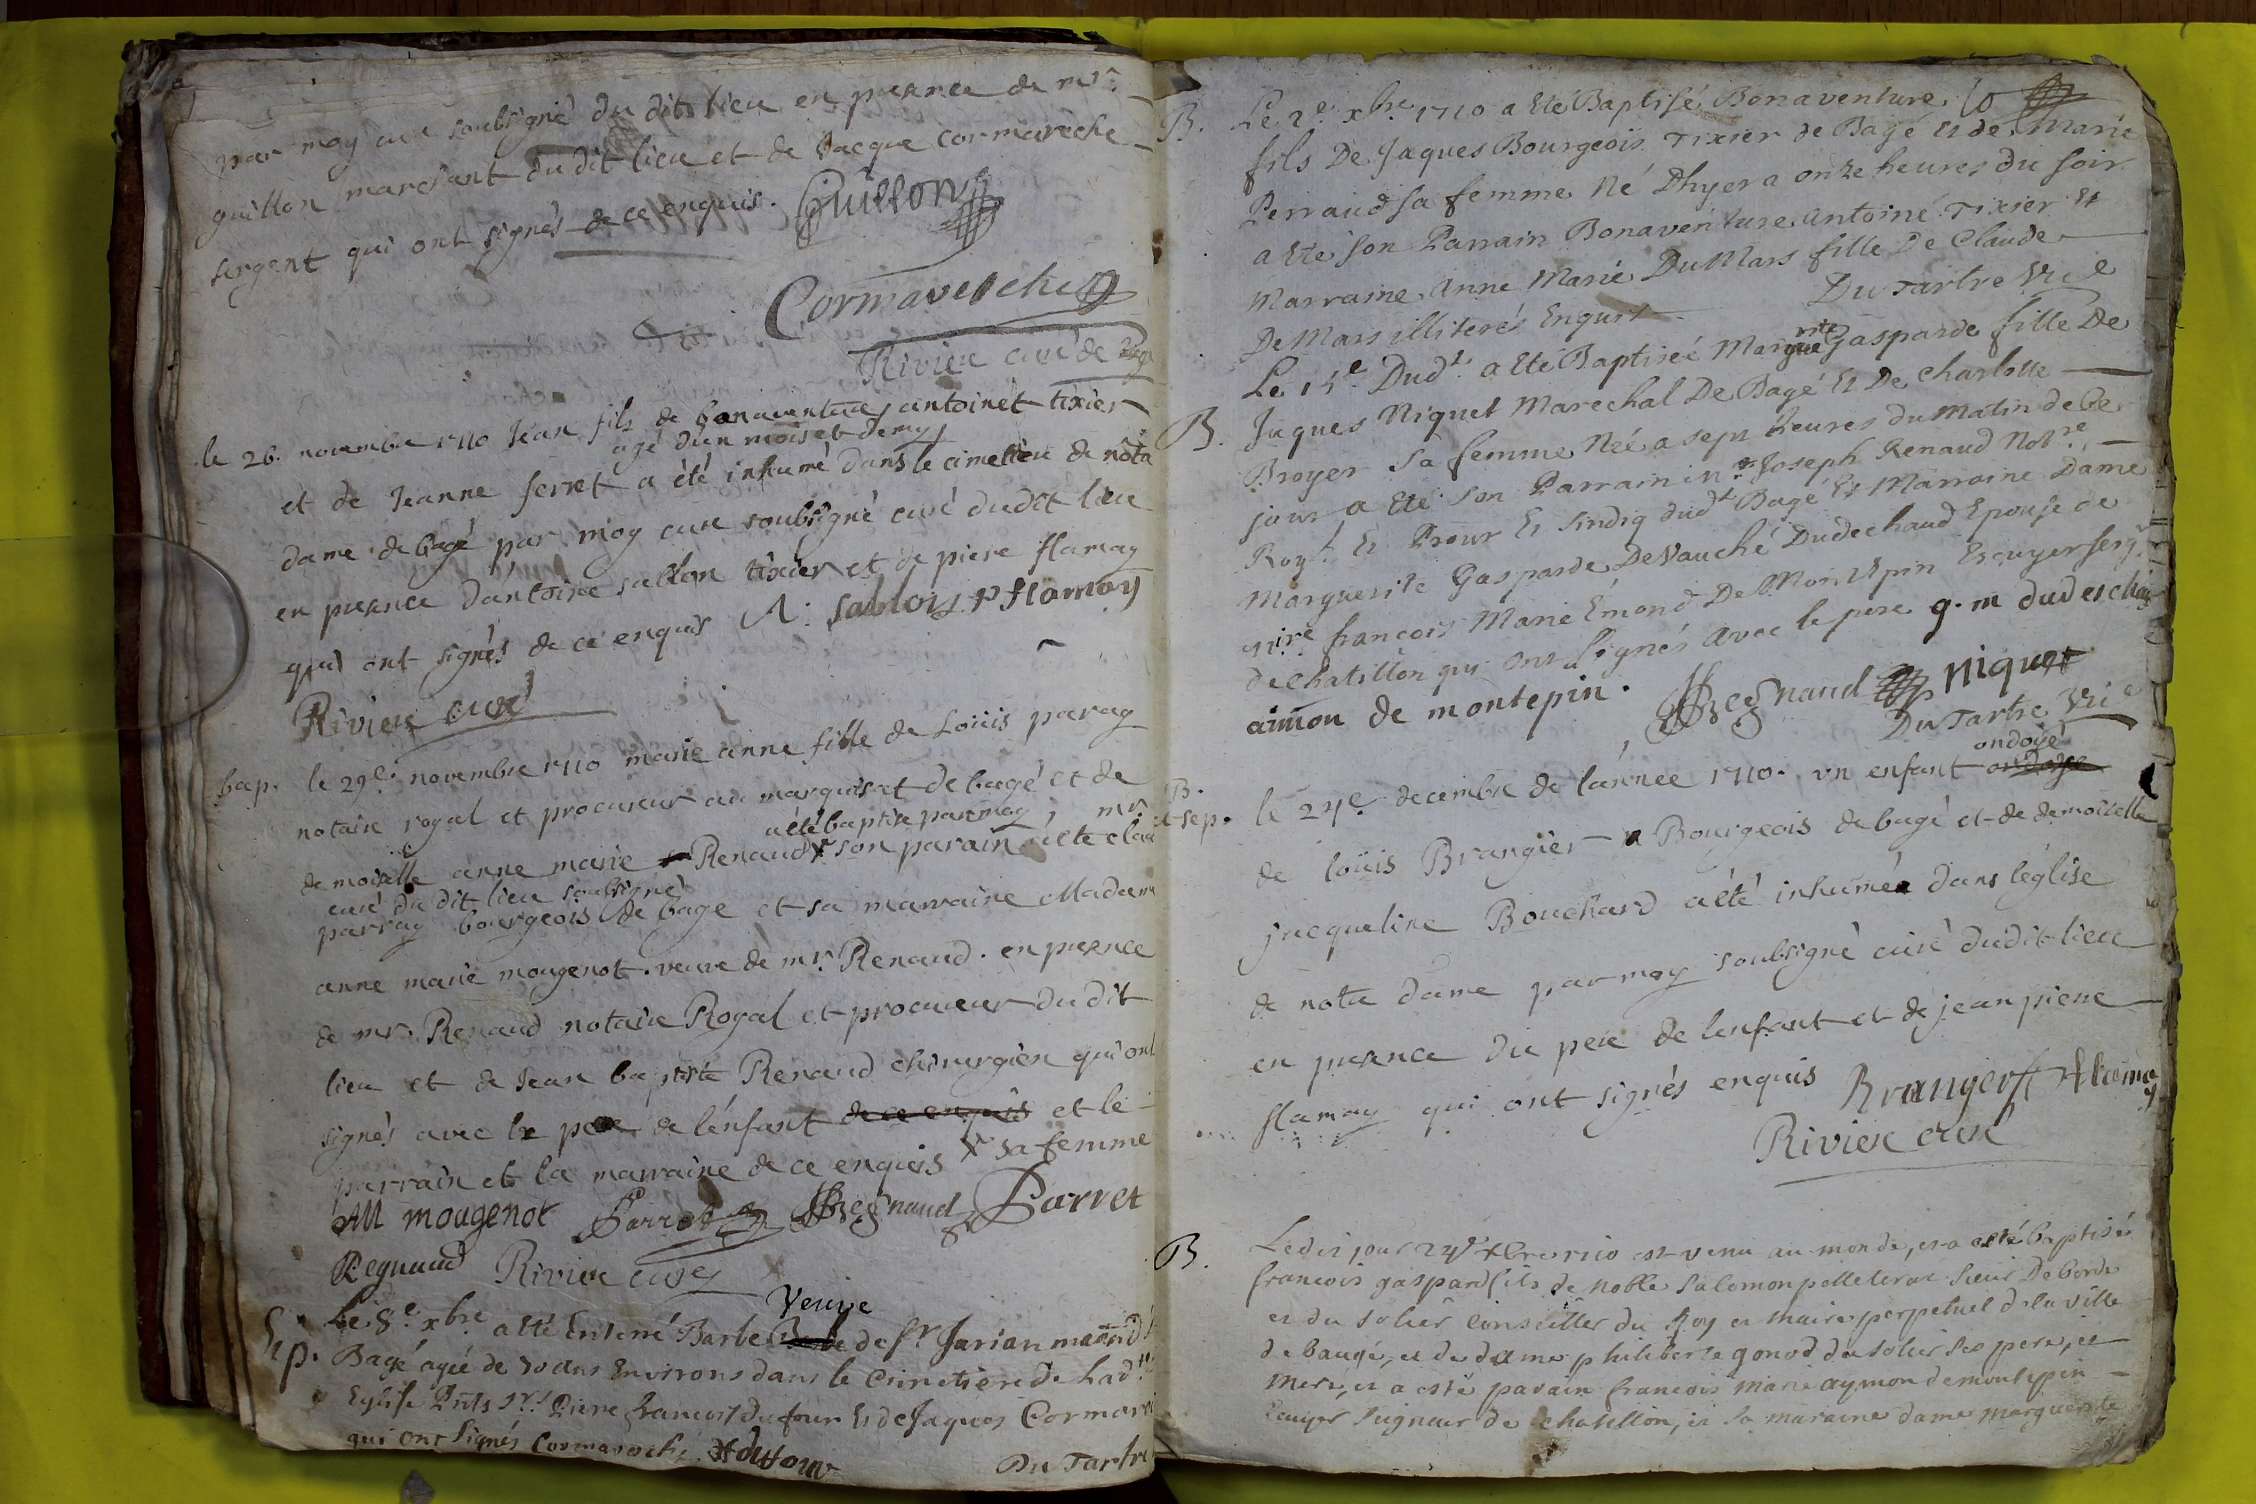 par moy curé soubsigné du dit lieu en presence de mr.
guillon marchant du dit lieu et de Jacque cormareche
sergent qui ont signés de ce enquis. Guillon
Cormaresche
Riviere curé de
le 26. novembre 1710 Jean fils de bonaventure antoinet tixier
agé d'un mois et demy
et de Jeanne ferret a été inhumé dans le cimetiere de nota
dame de bagé par moy cure soubsigné curé dudit lieu
en presence d'antoine sallon tixier et de piere flamay
qui ont signés de ce enquis A: Sablon P flamay
Riviere curé
bap. le 29e. novembre 1710 marie anne fille de Loüis paray
notaire royal et procureur au marquisat de bagé et de
a été baptisée par moy, mr.
demoiselle anne marie Renaud x son parain a été clau
curé du dit lieu soubsigné
parray bourgeois de bage et sa marraine Madame
anne marie mougenot. veuve de mr. Renaud. en presence
de mr. Renaud notaire Royal et procureur du dit
lieu et de Jean baptiste Renaud chirurgien qui ont
signés avec le pere de l'enfant de ce enquis et le
parrain et la marraine de ce enquis x sa femme
AM mougenot Parret Regnaud Parret
Regnaud Riviere curé
Veuve
Sep. Le 8e. xbre a été Enterré Barbe de Sr. Jarian
Bagé agée de 70 ans Environs dans le Cimetiere de Lad.te
Eglise Pnts Srs. Piere francois Dufour Et de Jaques Cormare
qui ont Signés Cormaroche Dufour
Du Tartre
B. Le 2e. xbre 1710 a été Baptisé Bonaventure
fils De Jaques Bourgeois Tixier de Bagé Et de Marie
Perraud sa femme Né Dhyer a onze heures du soir
a Eté son Parrain Bonaventure antoiné Tixier Et
Marraine Anne Marie DuMars fille De Claude
De Mars illiterés Enquis Du Tartre Vic
Le 15e. Dudt. a Eté Baptisée Marguerite Gasparde fille De
B. Jaques Niquet Marechal De Bagé Et De Charlotte
Broyer sa femme Née a sept heures du matin de ce
jour a Eté son Parrain Joseph Renaud Notre.
Roy. Et Prour Et Sindiq dudt Bagé Et Marraine Dame
Marguerite Gasparde DeVauché Dudechaud Epouse de
francois Marie Emond De Montepin Escuyer seig.
de chatillon qui ont signés avec le pere g. m dudeschau
aimon de montepin. Regnaud Niquet
Du Tartre Vic
ondoyé
B. et sep. le 24e. decembre de l'annee 1710. un enfant ondoyé
de loüis Brangier Bourgeois de bagé et de demoiselle
jacqueline Bouchard a été inhumé dans l'église
de nota dame par moy soubsigné curé dudit lieu
en presence du pere de l'enfant et de jean piere
flamay qui ont signés enquis Brangier flamay
Riviere curé
B. Ledit jour 24e xbre 1710 est venu au monde, et a esté baptisé
francois gaspard fils de noble salomon pelleterat sieur De borde
et du solier conseiller du Roy et maire perpetuel de la ville
de baugé, et de dame philiberte gonod du solier ses pere, et
mere, et a esté parain francois marie aymon de montepin
Ecuyer seigneur de chatillon, et sa maraine dame marguerite